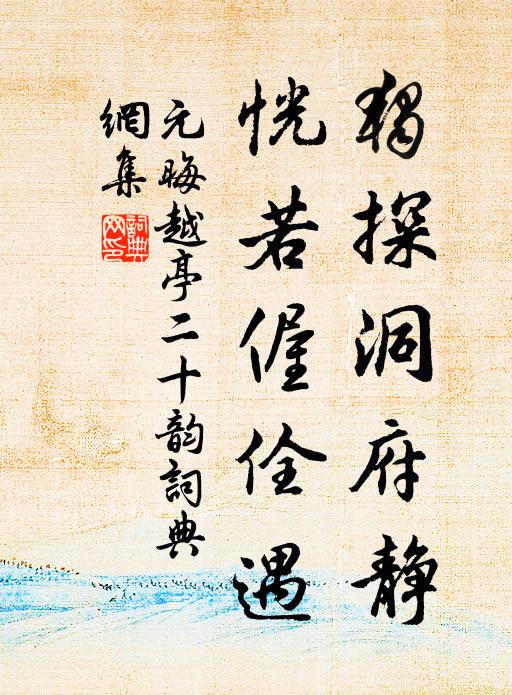 獨探洞府静
恍若偓佺遇
元晦越亭二十韵詞典
網集
詞典網印